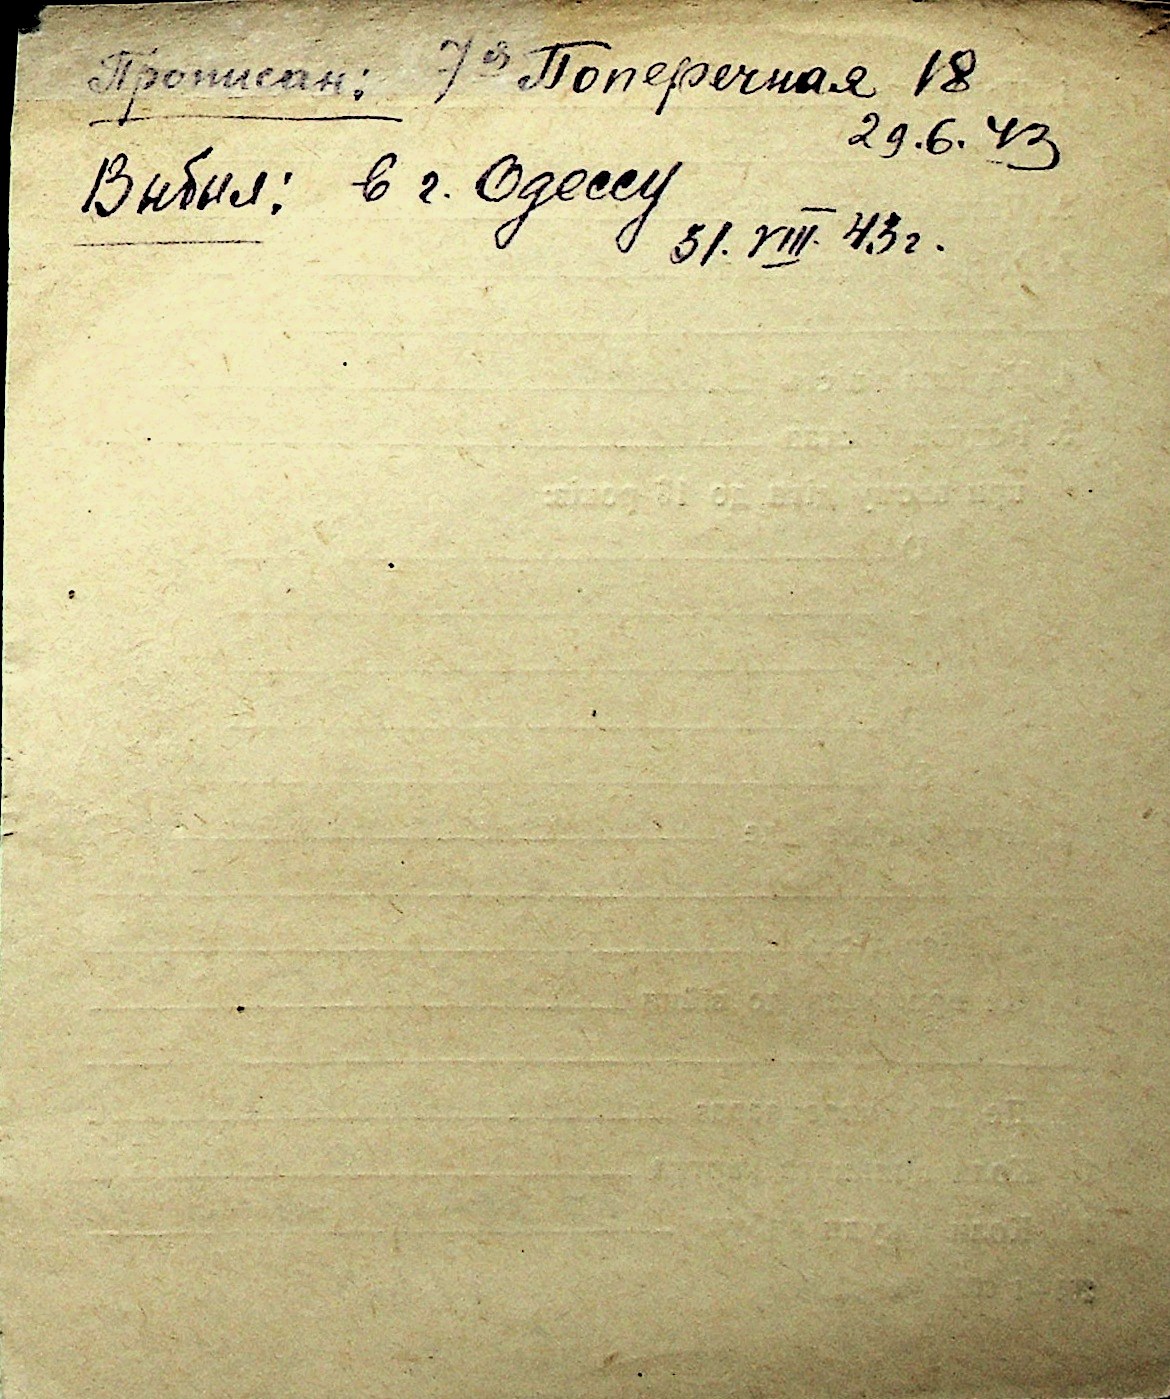 Прописан: 7я Поперечная 18
29.6.43
Выбыл: в г. Одессу
31.VIII.43г.